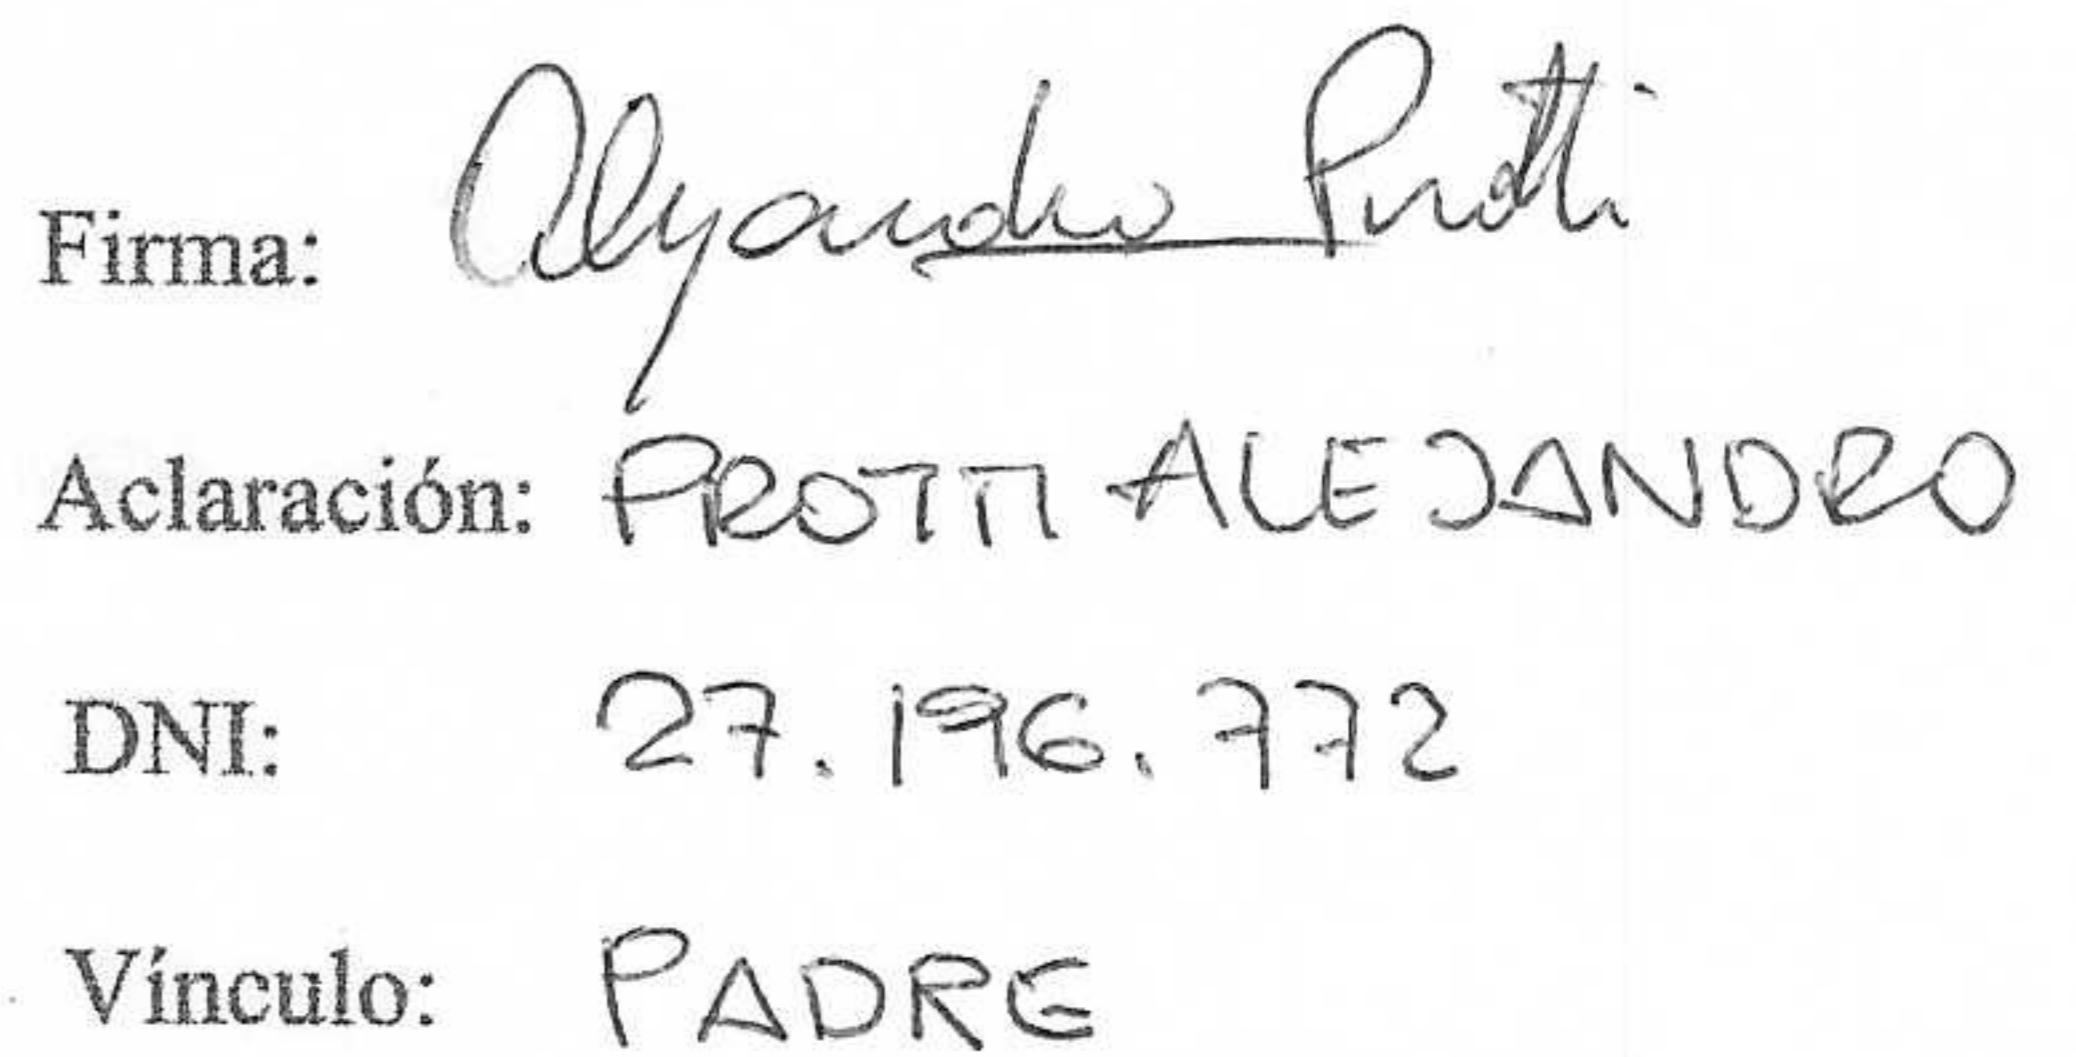 Firma: Alejandro Protti
Aclaración: PROTTI ALEJANDRO
DNI: 27.196.772
Vínculo: PADRE